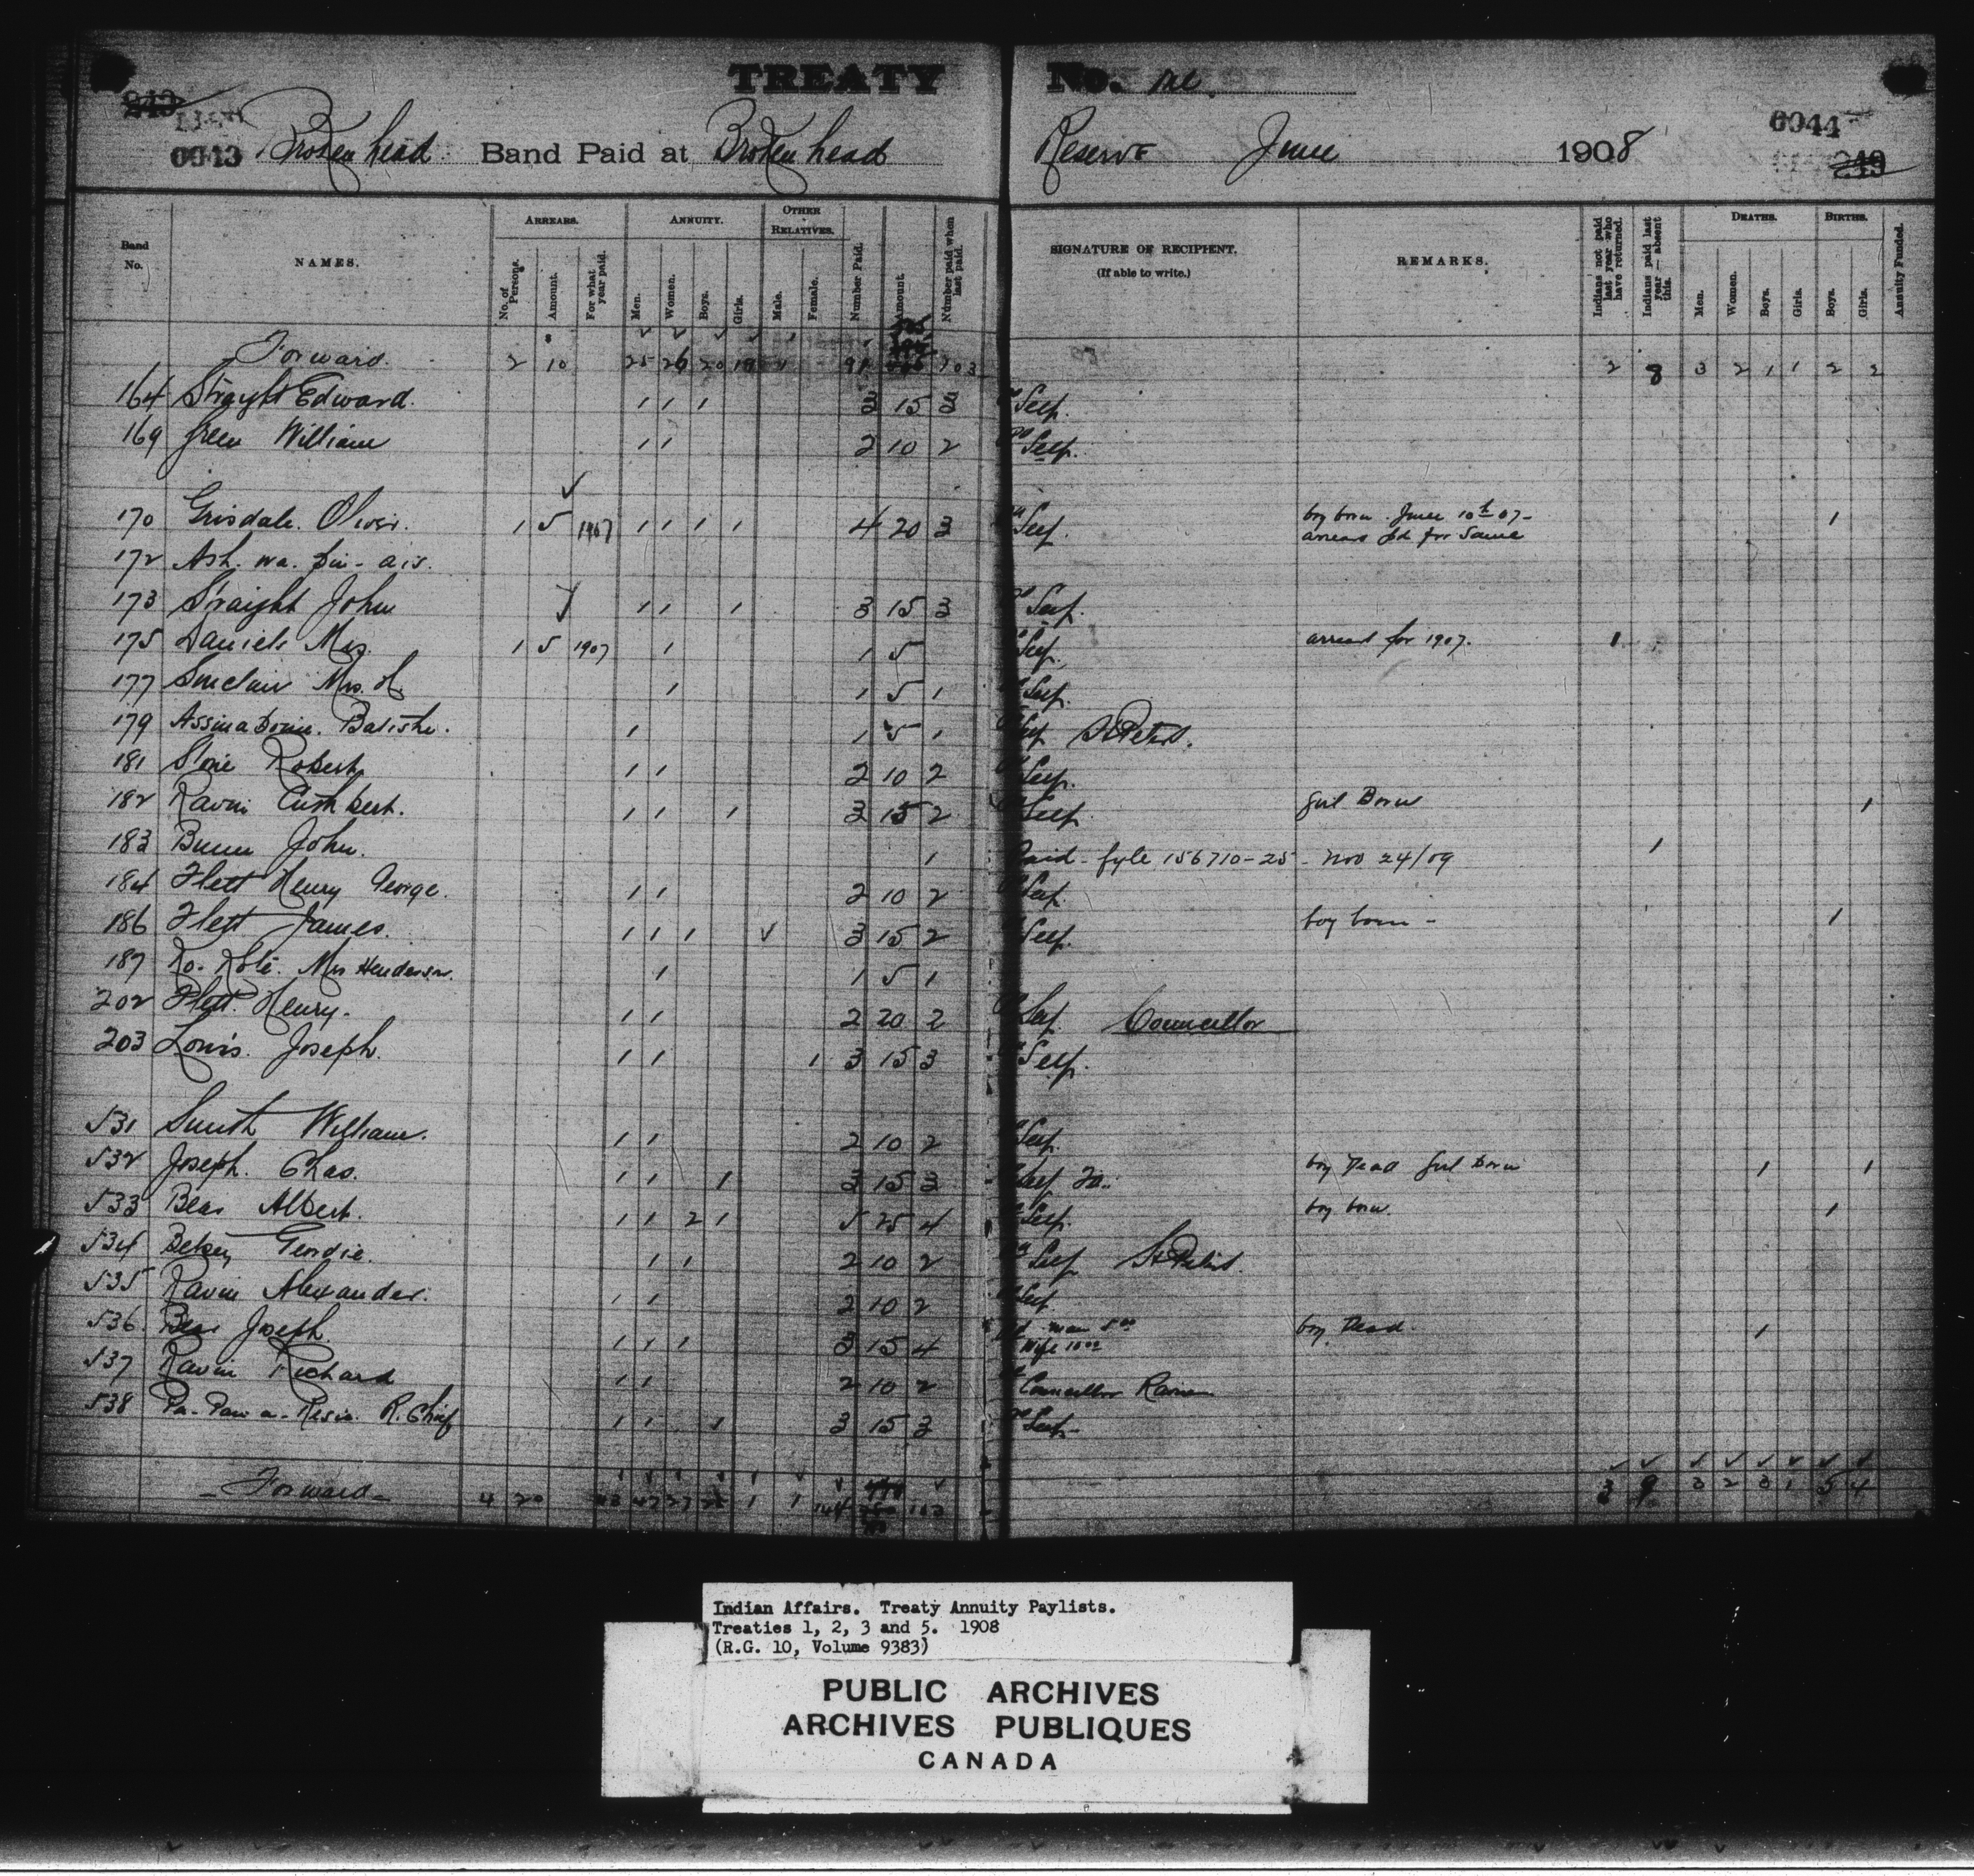 TREATY No. One
0043 Brokenhead Band Paid at Brokenhead Reserve June 1908 0044
249
Band No. NAMES. ARREARS. ANNUITY. OTHER RELATIVES. Number Paid. Amount. Number paid when last paid. SIGNATURE OF RECIPIENT. (If able to write.) REMARKS. Indians not paid last year who have returned. Indians paid last year—absent this. DEATHS. BIRTHS. Annuity Funded.
No. of Persons. Amount. For what year paid. Men. Women. Boys. Girls. Male. Female. Men. Women. Boys. Girls. Boys. Girls.
Forward. 2 10 25 26 20 91 103 2 8 3 2 1 1 2 2
164 Straight Edward. 1 1 1 3 15 3 Self.
169 Green William 1 1 2 10 2 Self.
170 Grisdale. Oliver. 1 5 1907 1 1 1 1 4 20 3 Self boy born. June 10th 07- 1
arrears pd for same
172 Ash. wa. pin- ais.
173 Straight John 1 1 1 3 15 3 Self.
175 Daniels Mrs. 1 5 1907 1 1 5 Self. arrears for 1907. 1
177 Sinclair Mrs. H 1 1 5 1 Self.
179 Assinaboine. Batishe. 1 1 5 1 Self St Peters.
181 Stone Robert 1 1 2 10 2 Self.
182 Raven Cuthbert. 1 1 1 3 15 2 Self girl Born 1
183 Bunn John. 1 Paid - fyle 156710-25 - Nov 24/09 1
184 Flett Henry George. 1 1 2 10 2 Self.
186 Flett James. 1 1 1 3 15 2 Self. boy born - 1
187 Mrs Henderson. 1 1 5 1
202 Flett. Henry. 1 1 2 20 2 Self. Councillor
203 Louis. Joseph. 1 1 1 3 15 3 Self.
531 Smith William. 1 1 2 10 2 Self.
532 Joseph. Chas. 1 1 1 3 15 3 Self boy Dead girl Born 1 1
533 Bear Albert. 1 1 2 1 5 25 4 Self. boy born. 1
534 Betsey Geordie. 1 1 2 10 2 Self St Peters.
535 Raven Alexander. 1 1 2 10 2 Self.
536. Bear Joseph. 1 1 1 3 15 4 Pd man 5 00 boy Dead. 1
Wife 10 00
537 Raven Richard 1 1 2 10 2 Councillor Raven
538 R. Chief 1 1 1 3 15 3 Self-
- Forward - 4 20 43 47 27 1 1 144 3 9 3 2 3 1 5 4
Indian Affairs. Treaty Annuity Paylists.
Treaties 1, 2, 3 and 5. 1908
(R.G. 10, Volume 9383)
PUBLIC ARCHIVES
ARCHIVES PUBLIQUES
CANADA